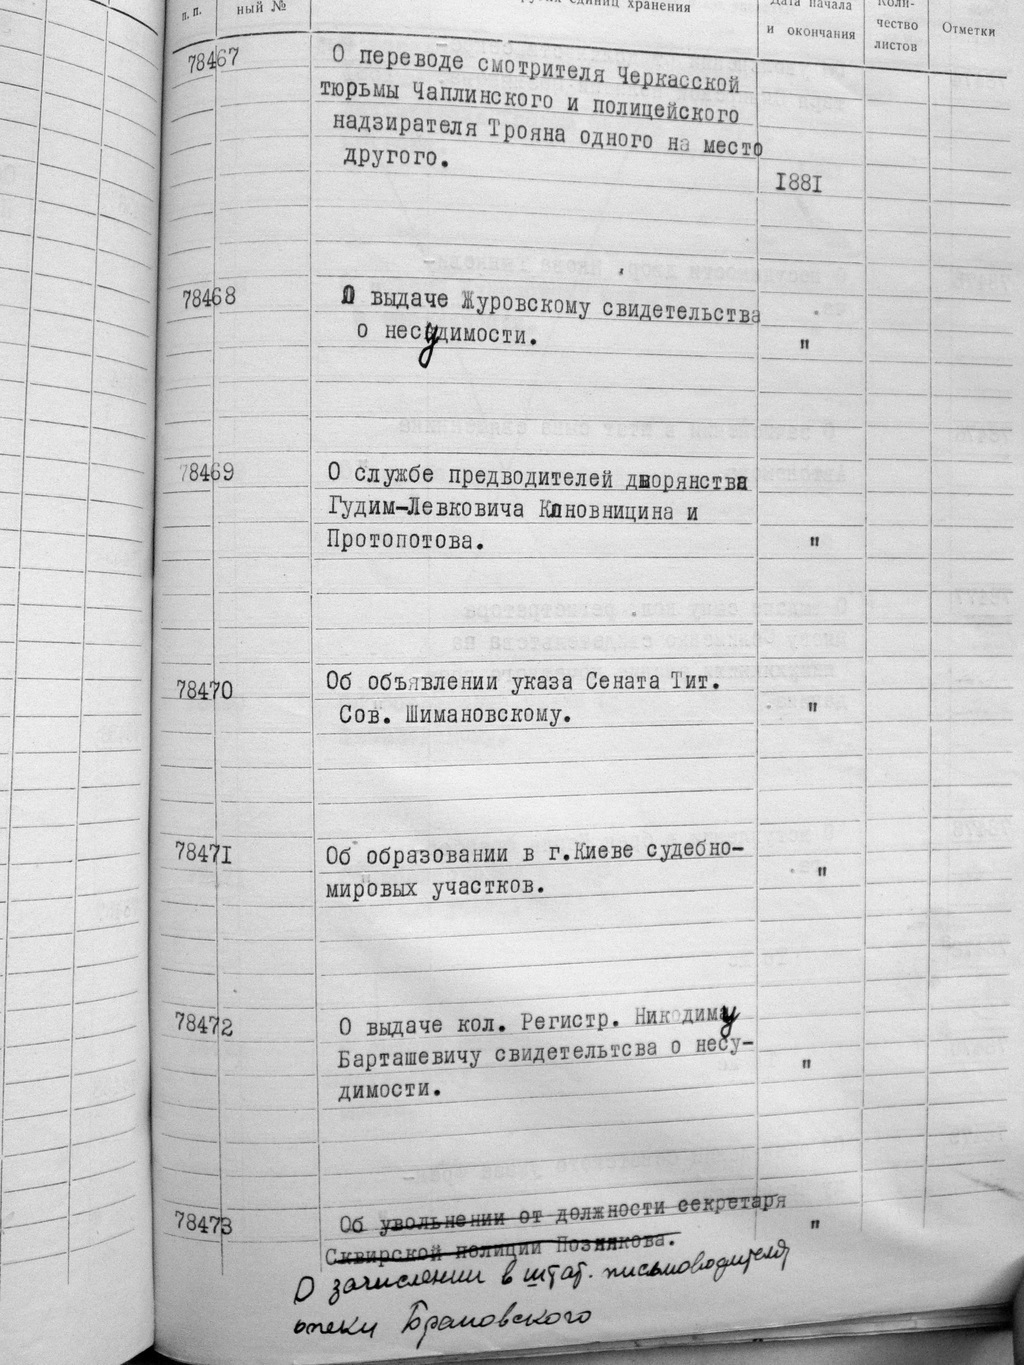 п.п.
ный №
единиц хранения
Дата начала
и окончания
Коли-
чество
листов
Отметки
78467
О переводе смотрителя Черкасской
тюрьмы Чаплинского и полицейского
надзирателя Трояна одного на место
другого.
1881
78468
О выдаче Журовскому свидетельства
о несудимости.
"
78469
О службе предводителей дворянства
Гудим-Левковича Клновницина и
Протопотова.
"
78470
Об объявлении указа Сената Тит.
Сов. Шимановскому.
"
78471
Об образовании в г.Киеве судебно-
мировых участков.
"
78472
О выдаче кол. Регистр. Никодиму
Барташевичу свидетельтсва о несу-
димости.
"
78473
Об увольнении от должности секретаря
Сквирской полиции Познякова.
"
О зачислении в штат. письмоводителя
опеки